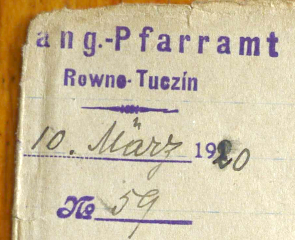 ang.-Pfarramt
Rowno-Tuczin
10. März 1920
№ 59